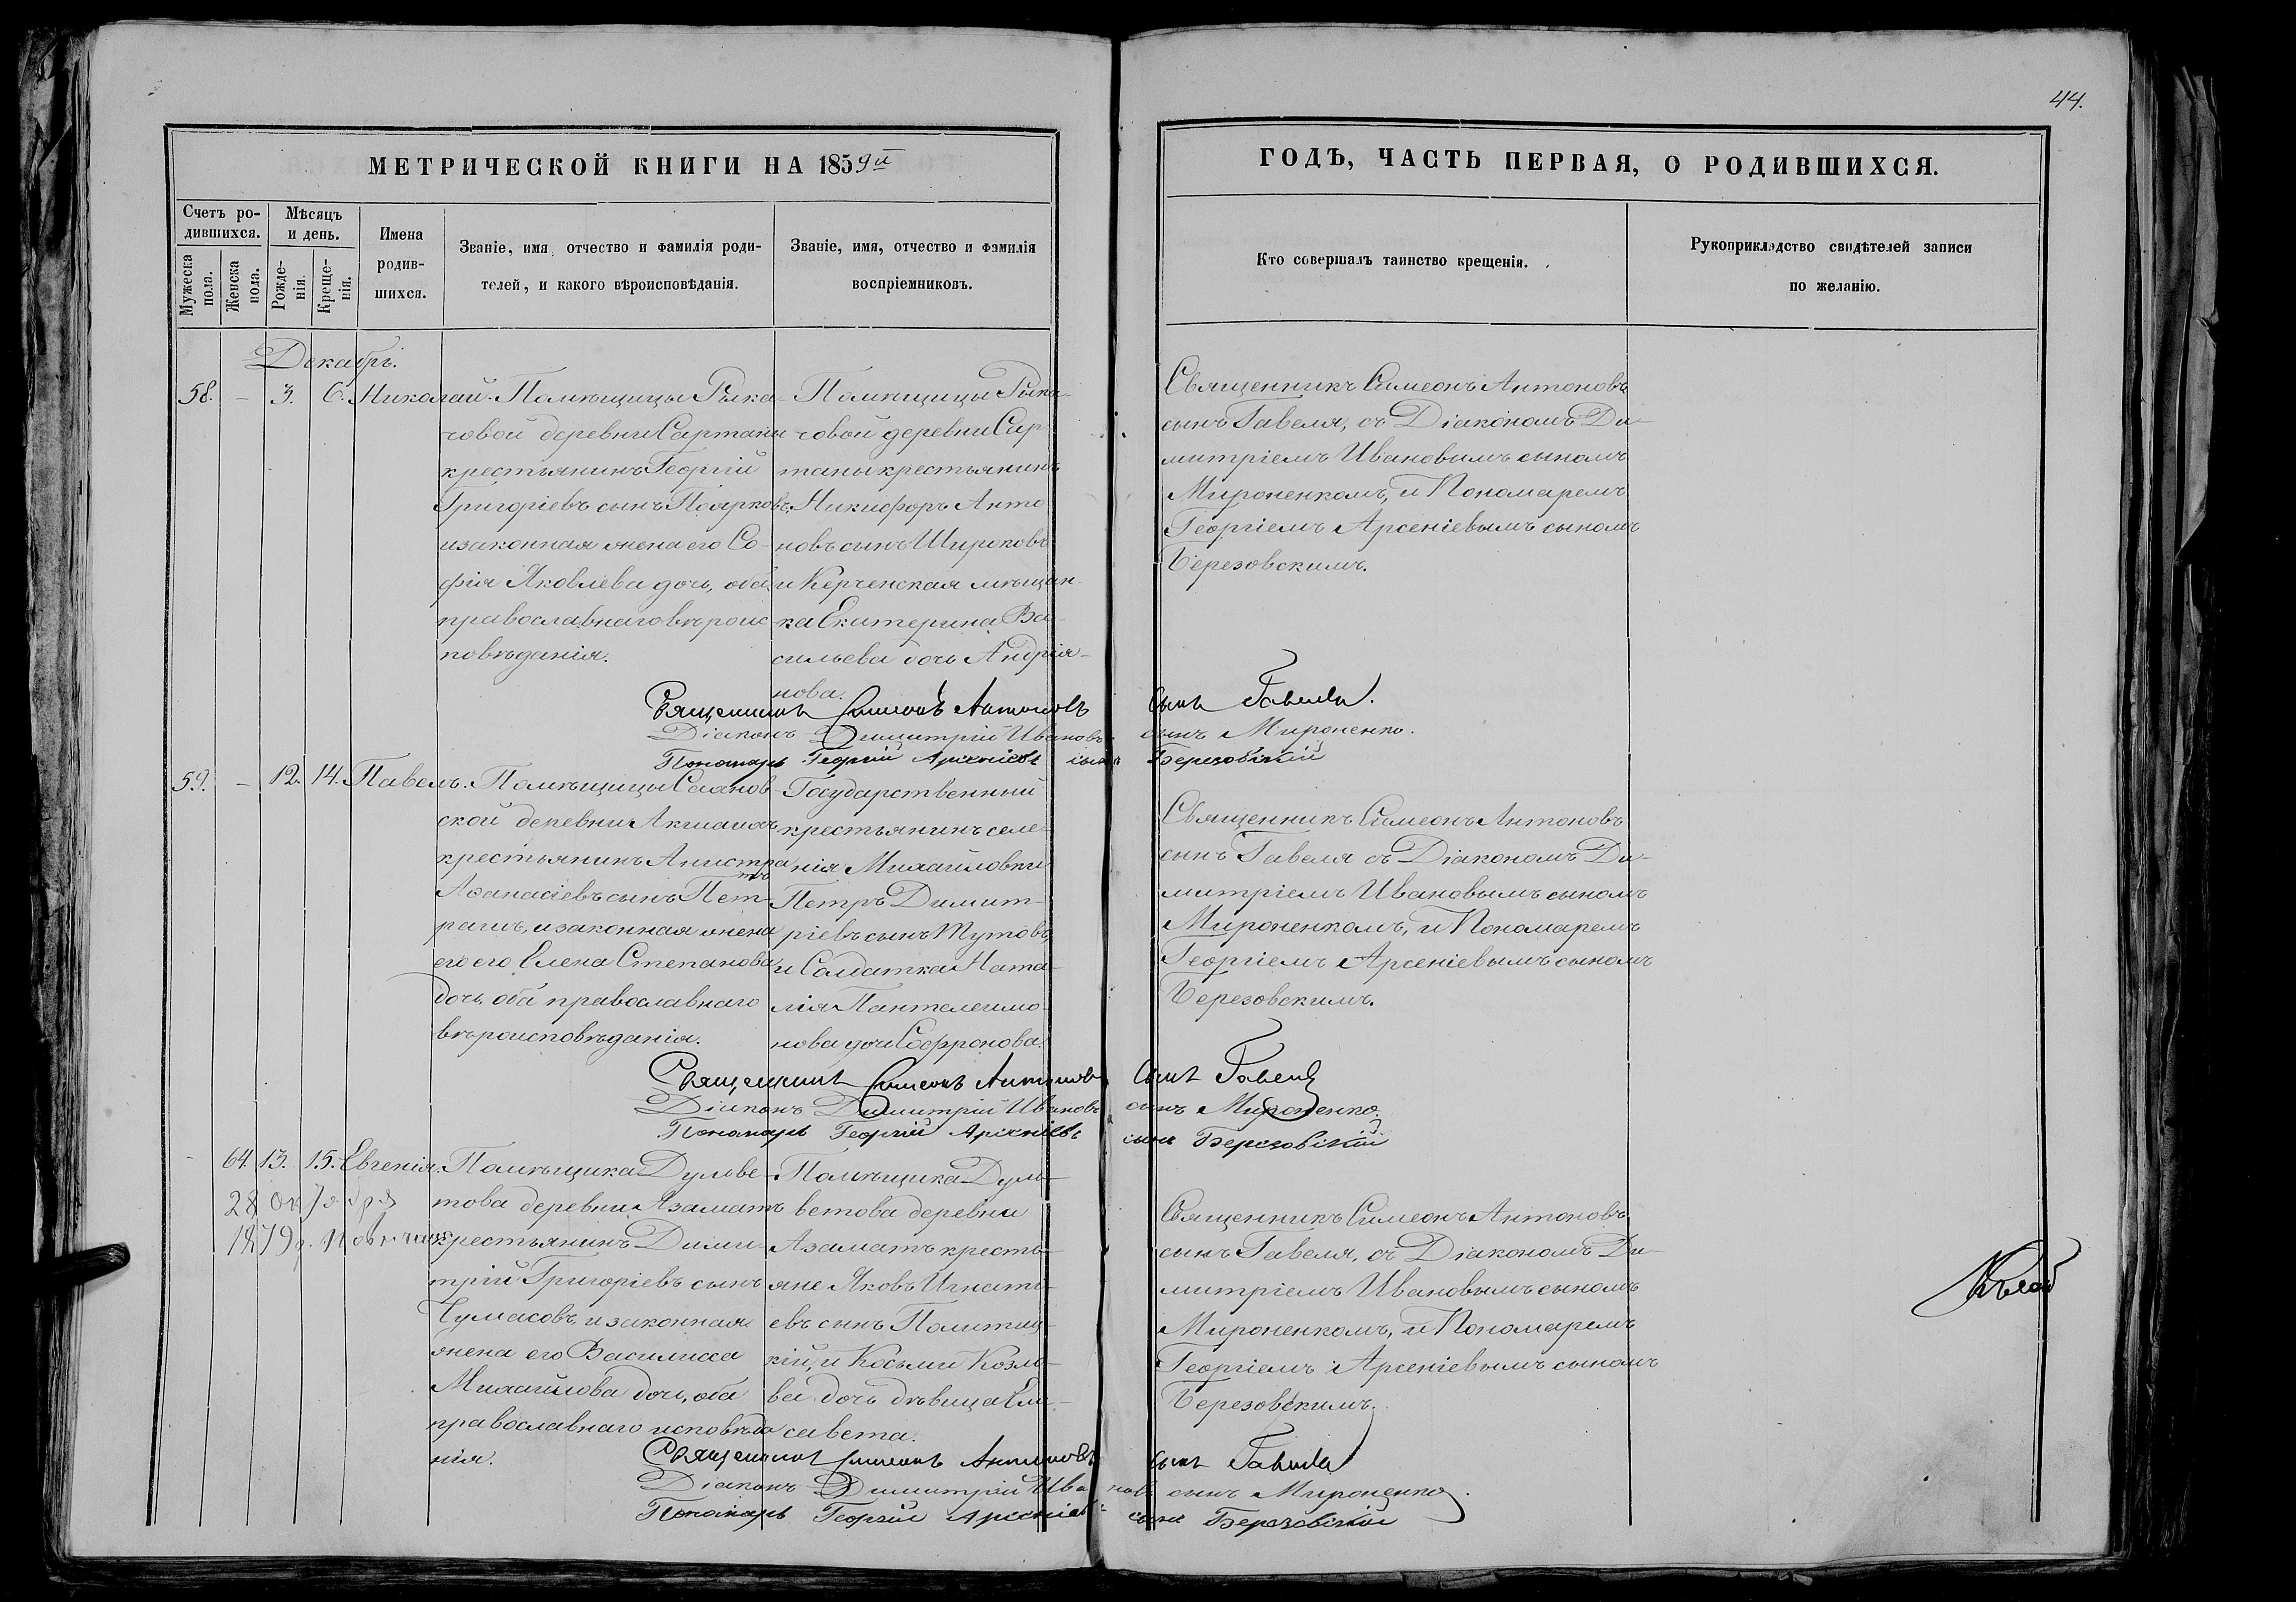 44.
МЕТРИЧЕСКОЙ КНИГИ НА 1859й
ГОДЪ, ЧАСТЬ ПЕРВАЯ, О РОДИВШИХСЯ.
Счетъ ро-
дившихся.
Мужеска
пола.
Женска
пола.
Мѣсяцъ
и день.
Рожде-
нія.
Креще-
нія.
Имена
родив-
шихся.
Званіе, имя, отчество и фамилія роди-
телей, и какого вѣроисповѣданія.
Званіе, имя, отчество и фамилія
воспріемниковъ.
Кто совершалъ таинство крещенія.
Рукоприкладство свидѣтелей записи
по желанію.
Декабрь.
58. – 3. 6. Николай.
Помѣщицы Рыка-
човой деревни Сартаны
крестьянинъ Георгій
Григоріевъ сынъ Поярковъ,
и законная жена его Со-
фія Яковлева дочь, оба
православнаго вѣроис-
повѣданія.
Помѣщицы Рыка-
човой деревни Сар-
таны крестьянинъ
Никифоръ Анто
новъ сынъ Широковъ
и Керченская мѣщан-
ка Екатерина Ва-
сильева дочь Андрія-
нова.
Священникъ Симеонъ Антоновъ
сынъ Гавеля, съ Діакономъ Ди-
митріемъ Ивановымъ сыномъ
Мироненкомъ, и Пономаремъ
Георгіемъ Арсеніевымъ сыномъ
Березовскимъ.
Священникъ Симеонъ Антоновъ сынъ Гавеля.
Діаконъ Димитрій Ивановъ сынъ Мироненко.
Пономарь Георгій Арсеніевъ сынъ Березовскій
59. – 12. 14. Павелъ.
Помѣщицы
ской деревни
крестьянинъ
Аѳанасіевъ сынъ Пет-
рашъ, и законная жена
его его Елена Степанова
дочь оба православнаго
вѣроисповѣданія.
Государственный
крестьянинъ селе-
нія Михайловки
Петръ Димит-
ріевъ сынъ Тутовъ,
и Солдатка Ната-
лія Пантелеимо-
нова дочь Софронова.
Священникъ Симеонъ Антоновъ
сынъ Гавеля съ Діакономъ Ди-
митріемъ Ивановымъ сыномъ
Мироненкомъ, и Пономаремъ
Георгіемъ Арсеніевымъ сыномъ
Березовскимъ.
Священникъ Симеонъ Антоновъ сынъ Гавеля
Діаконъ Димитрій Ивановъ сынъ Мироненко.
Пономарь Георгій Арсеніевъ сынъ Березовскій
– 64. 13. 15. Евгенія.
28 октября
1879 г.
Помѣщика Дульве-
това деревни Азаматъ
крестьянинъ Дими-
трій Григоріевъ сынъ
Чумасовъ, и законная
жена его Василисса
Михайлова дочь, оба
православнаго исповѣда
нія.
Помѣщика Дуль-
ветова деревни
Азаматъ кресть-
яне Яковъ Игнать-
евъ сынъ Полтиц-
кій, и Косьмы Козло-
ва дочь дѣвица Ели-
савета.
Священникъ Симеонъ Антоновъ
сынъ Гавеля, съ Діакономъ Ди-
митріемъ Ивановымъ сыномъ
Мироненкомъ, и Пономаремъ
Георгіемъ Арсеніевымъ сыномъ
Березовскимъ.
Священникъ Симеонъ Антоновъ сынъ Гавеля
Діаконъ Димитрій Ивановъ сынъ Мироненко.
Пономарь Георгій Арсеніевъ сынъ Березовскій